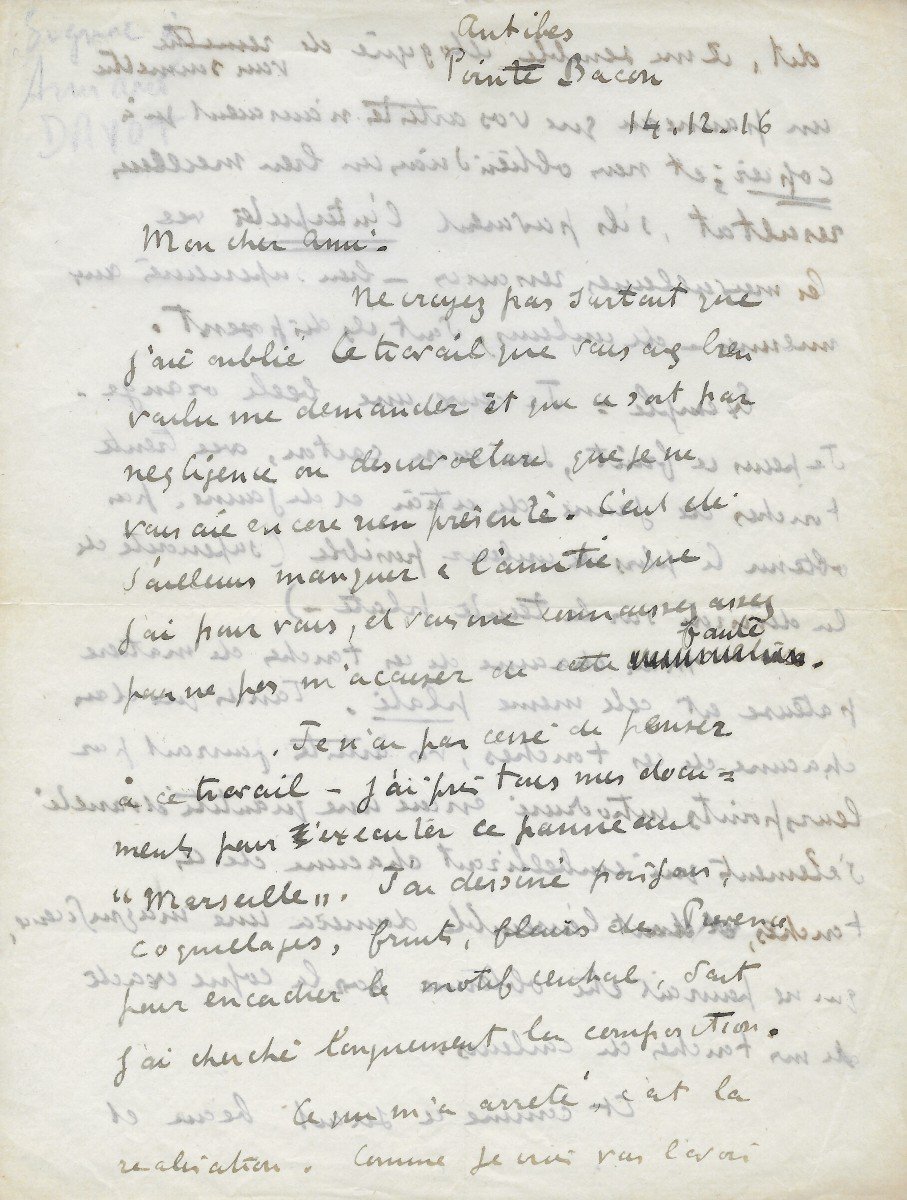 Antibes
Pointe Bacon
14.12.16
Mon cher ami.
Ne croyez pas surtout que
j'aie oublié le travail que vous avez bien
voulu me demander et que ce soit par
negligence ou desinvolture, que je ne
vous aie encore rien présenté. C'eut été
d'ailleurs manquer à l'amitié que
j'ai pour vous, et vous me connaissez assez
pour ne pas m'accuser de cette faute.
Je n'ai pas cessé de penser
à ce travail – j'ai pris tous mes docu=
ments pour executer ce panneau
"Marseille". J'ai dessiné poissons,
coquillages, fruits, fleurs de Provence
pour encadrer le motif central, dont
j'ai cherché longuement la composition.
Ce qui m'a arreté, c'est la
realisation. Comme je crois vous l'avoir
Signac à
Armand
DAYOT